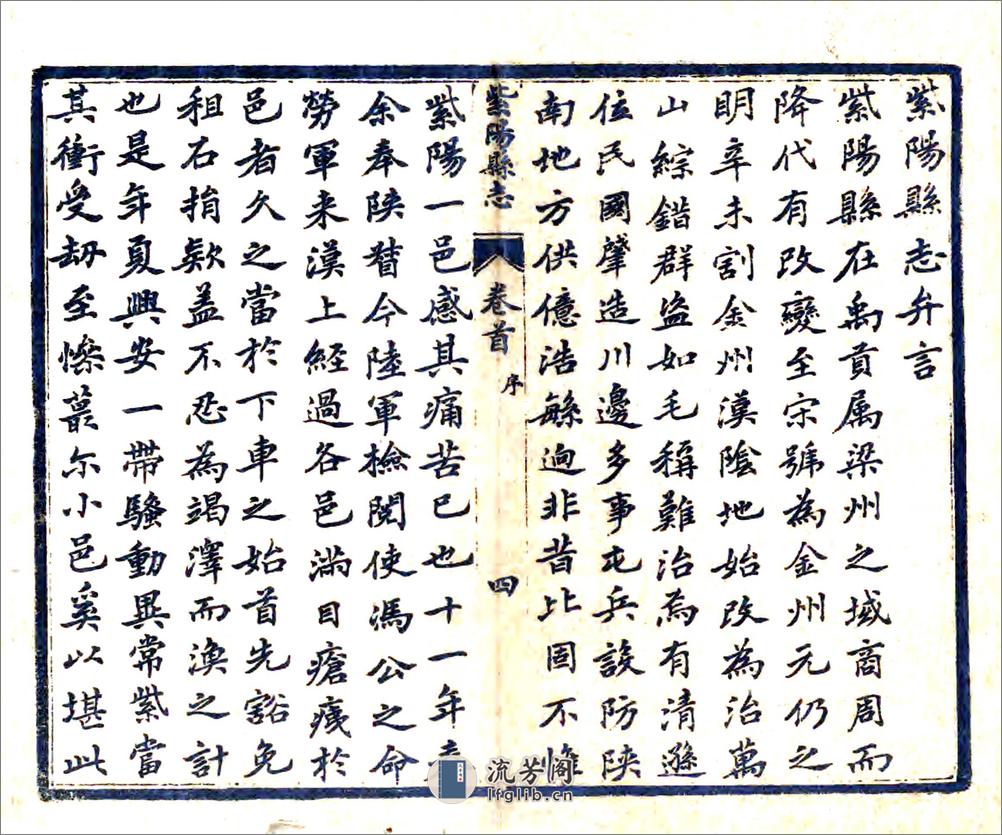 紫陽縣志弁言
紫陽縣在禹貢属梁州之域商周而
降代有改變至宋號為金州元仍之
明辛未割金州漢陰地始改為治萬
山綜錯群盗如毛稱難治焉有清遜
位民國肇造川邊多事屯兵設防陝
南地方供億浩繇逈非昔比固不惟
紫陽縣志 卷首 序 四
紫陽一邑感其痛苦已也十一年
余奉陝督今陸軍檢閱使馮公之命
勞軍来漢上經過各邑滿目瘡痍於
邑者久之當於下車之始首先豁免
租石捐欵盖不忍為竭澤而漁之計
也是年夏興安一帶騷動異常紫當
其衝受劫至慘蕞尔小邑奚以堪此
流芳阁
lfglib.cn